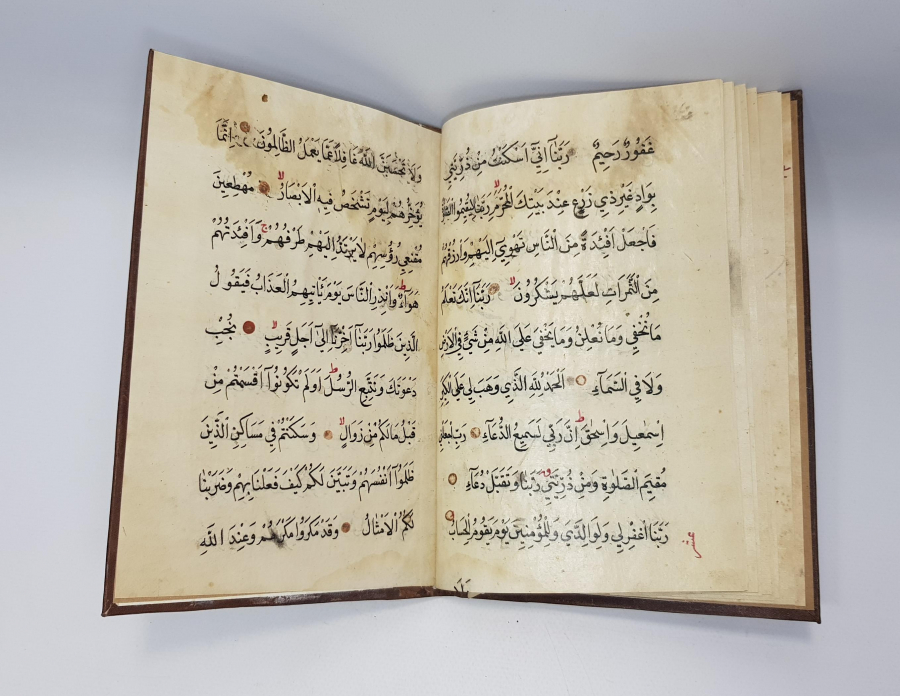 غَفُورٌ رَحِيمٌ رَبَّنَا اِنِّي اَسْكَنْتُ مِنْ ذُرِّيَّتِي
بِوَادٍ غَيْرِ ذِي زَرْعٍ عِنْدَ بَيْتِكَ الْمُحَرَّمِ رَبَّنَا لِيُقِيمُوا الصَّلٰوةَ
فَاجْعَلْ اَفْئِدَةً مِنَ النَّاسِ تَهْوِي اِلَيْهِمْ وَارْزُقْهُمْ
مِنَ الثَّمَرَاتِ لَعَلَّهُمْ يَشْكُرُونَ رَبَّنَا اِنَّكَ تَعْلَمُ
مَا نُخْفِي وَمَا نُعْلِنُ وَمَا يَخْفٰى عَلَى اللّٰهِ مِنْ شَيْءٍ فِي الْاَرْضِ
وَلَا فِي السَّمَاءِ اَلْحَمْدُ لِلّٰهِ الَّذِي وَهَبَ لِي عَلَى الْكِبَرِ
اِسْمٰعِيلَ وَاِسْحٰقَ اِنَّ رَبِّي لَسَمِيعُ الدُّعَاءِ رَبِّ اجْعَلْنِي
مُقِيمَ الصَّلٰوةِ وَمِنْ ذُرِّيَّتِي رَبَّنَا وَتَقَبَّلْ دُعَاءِ
رَبَّنَا اغْفِرْ لِي وَلِوَالِدَيَّ وَلِلْمُؤْمِنِينَ يَوْمَ يَقُومُ الْحِسَابُ
عشر
وَلَا تَحْسَبَنَّ اللّٰهَ غَافِلًا عَمَّا يَعْمَلُ الظَّالِمُونَ اِنَّمَا
يُؤَخِّرُهُمْ لِيَوْمٍ تَشْخَصُ فِيهِ الْاَبْصَارُ مُهْطِعِينَ
مُقْنِعِي رُؤُسِهِمْ لَا يَرْتَدُّ اِلَيْهِمْ طَرْفُهُمْ وَاَفْئِدَتُهُمْ
هَوَاءٌ وَاَنْذِرِ النَّاسَ يَوْمَ يَأْتِيهِمُ الْعَذَابُ فَيَقُولُ
الَّذِينَ ظَلَمُوا رَبَّنَا اَخِّرْنَا اِلٰى اَجَلٍ قَرِيبٍ نُجِبْ
دَعْوَتَكَ وَنَتَّبِعِ الرُّسُلَ اَوَلَمْ تَكُونُوا اَقْسَمْتُمْ مِنْ
قَبْلُ مَا لَكُمْ مِنْ زَوَالٍ وَسَكَنْتُمْ فِي مَسَاكِنِ الَّذِينَ
ظَلَمُوا اَنْفُسَهُمْ وَتَبَيَّنَ لَكُمْ كَيْفَ فَعَلْنَا بِهِمْ وَضَرَبْنَا
لَكُمُ الْاَمْثَالَ وَقَدْ مَكَرُوا مَكْرَهُمْ وَعِنْدَ اللّٰهِ